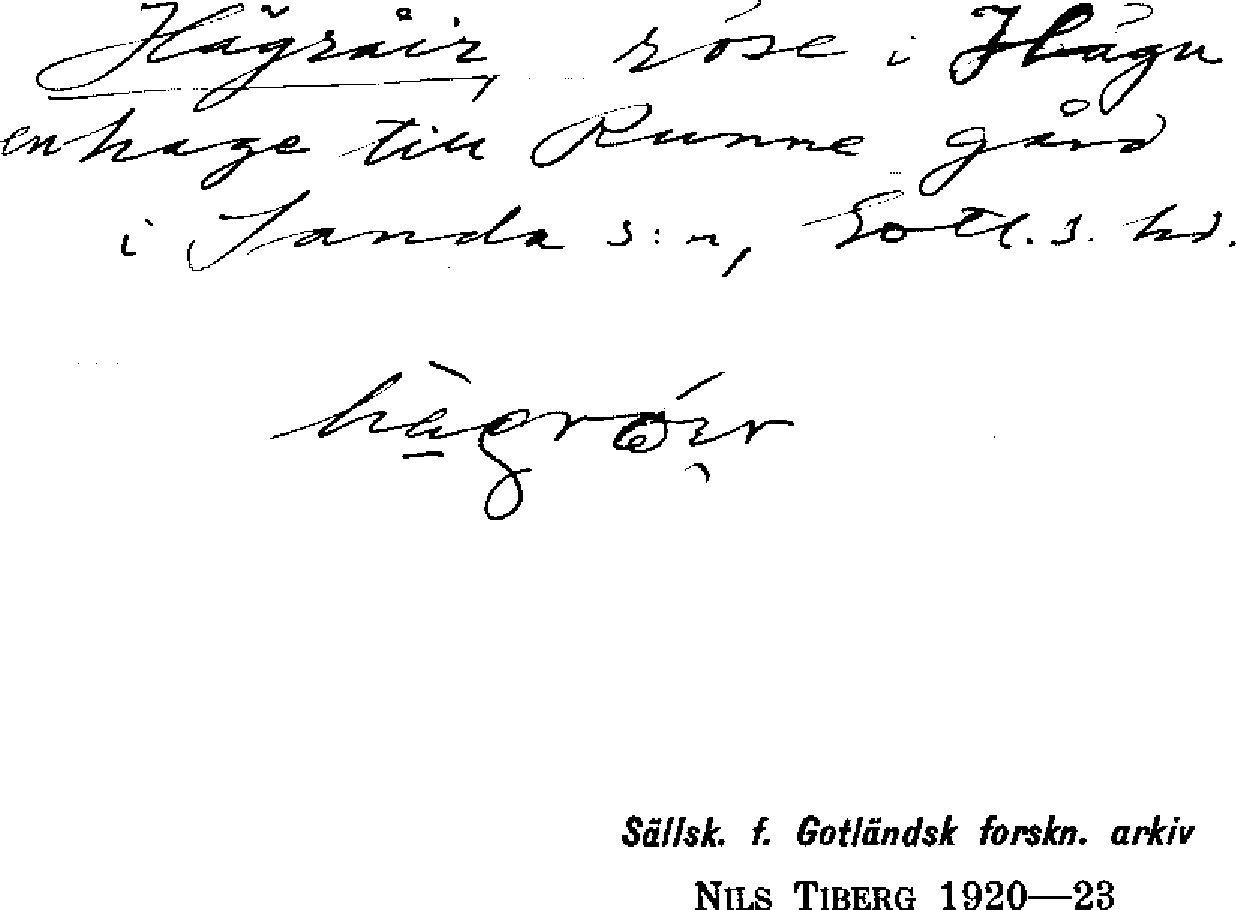 Hägråir, röse i Hägu
enhage till Runne gård
i Sanda s:n, Gotl. s. hd.
Sällsk. f. Gotländsk forskn. arkiv
NILS TIBERG 1920—23